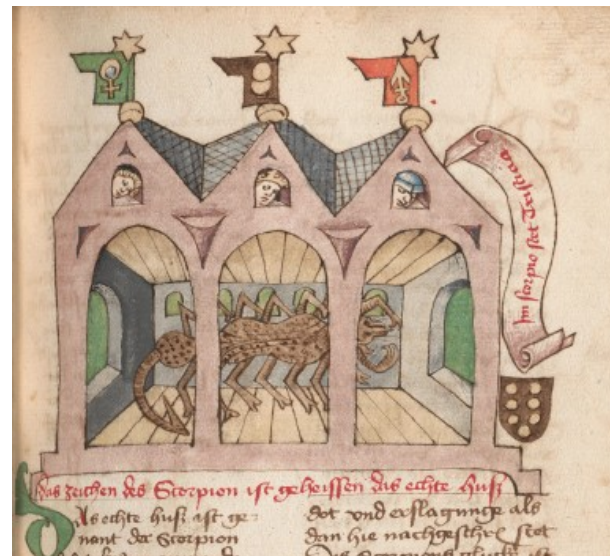 Im scorpio stet
das zeichen des Scorpion ist geheissen das echte huß
Das echte huß ist ge-
nant der Scorpion
dot vnd erslagunge als
dan hie nachgeschr stet
Des Scorpions